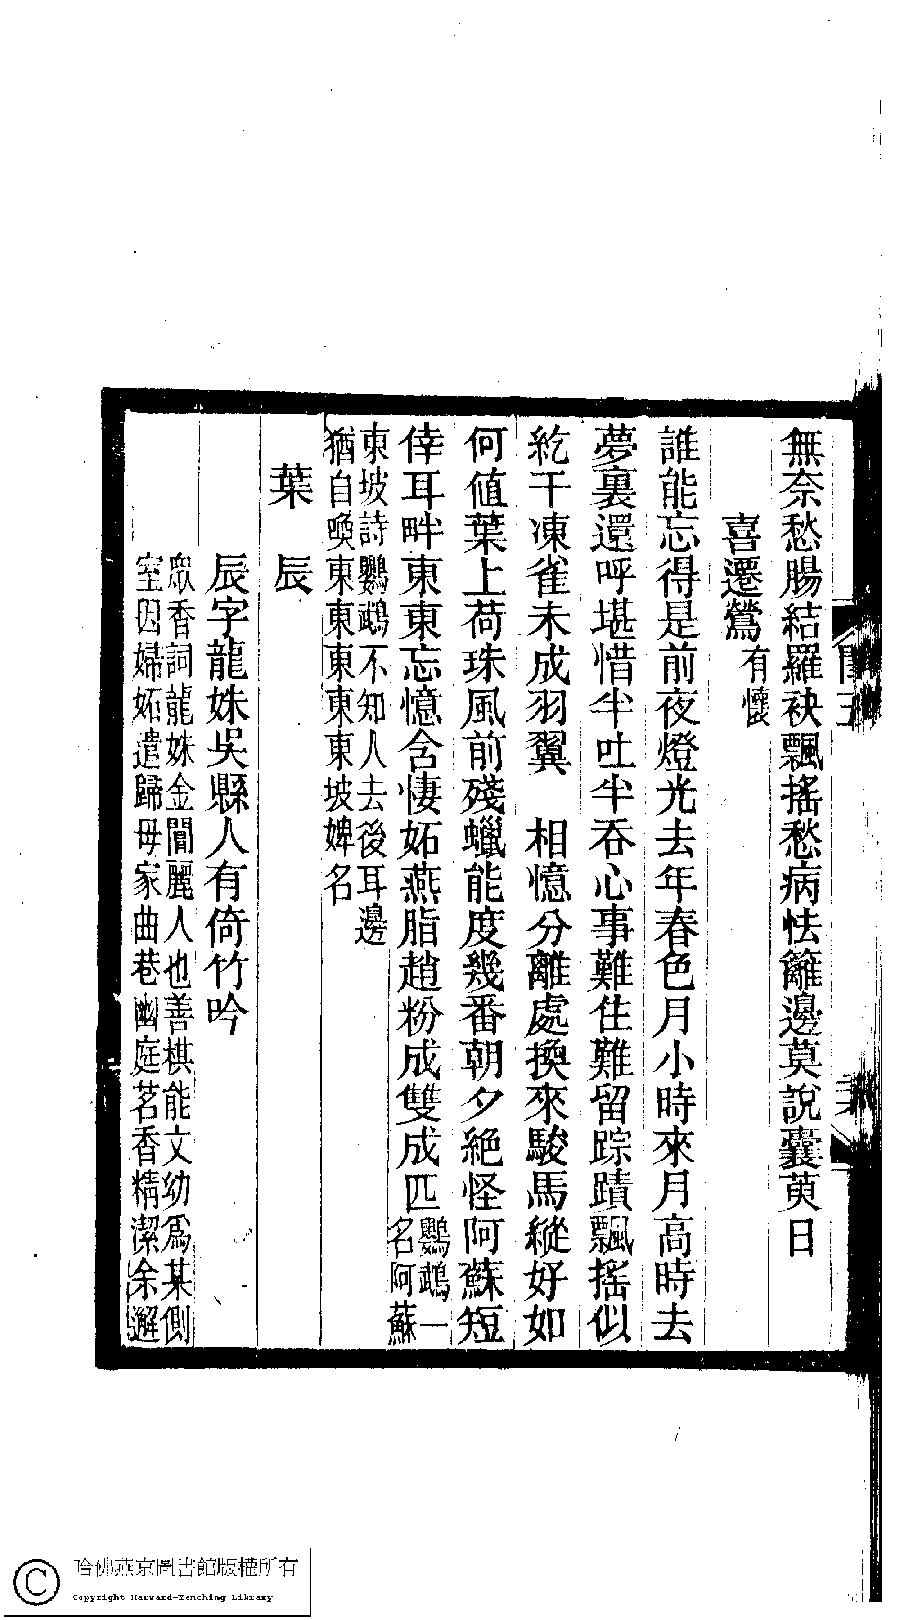 無奈愁腸結羅袂飄搖愁病怯籬邊莫說囊萸日
喜遷鶯有懷
誰能忘得是前夜燈光去年春色月小時來月高時去
夢裏還呼堪惜半吐半吞心事難住難留踪蹟飄搖似
紇干凍雀未成羽翼　相憶分離處換來駿馬縱好如
何値葉上荷珠風前殘蠟能度幾番朝夕絕怪阿蘇短
倖耳畔東東忘憶含悽妬燕脂趙粉成雙成匹鸚鵡一
名阿蘇
東坡詩鸚鵡不知人去後耳邊
猶自喚東東東東坡婢名
葉　辰
辰字龍妹吳縣人有倚竹吟
眾香詞龍妹金閶麗人也善棋能文幼爲某側
室因婦妬遣歸母家曲巷幽庭茗香精潔余邂
哈佛燕京圖書館版權所有
Copyright Harvard-Yenching Library